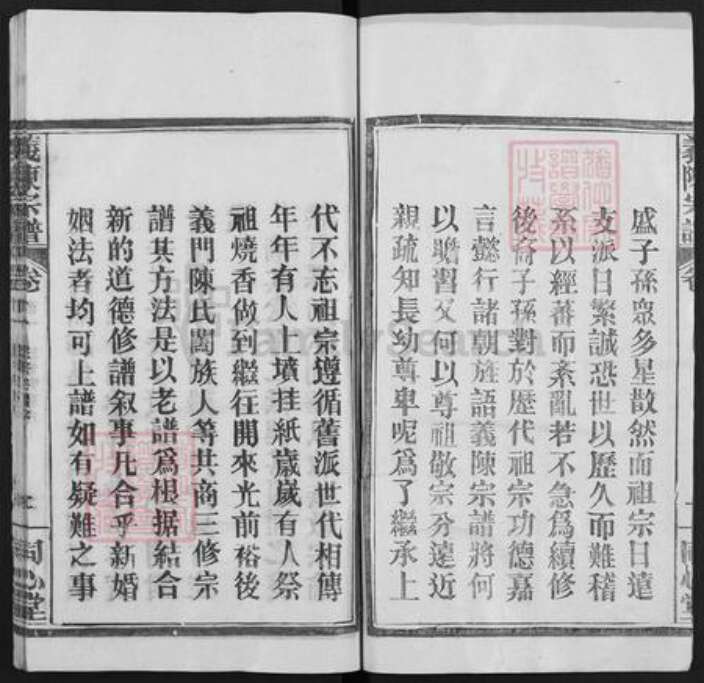 盛子孫眾多星散然而祖宗日遠
支派日繁誠恐世以歷久而難稽
系以經蕃而紊亂若不急為續修
後裔子孫對於歷代祖宗功德嘉
言懿行諸朝旌語義陳宗譜將何
以瞻習又何以尊祖敬宗分遠近
親疏知長幼尊卑呢為了繼承上
代不忘祖宗遵循舊派世代相傳
年年有人上墳挂紙歲歲有人祭
祖燒香做到繼往開來光前裕後
義門陳氏闔族人等共商三修宗
譜其方法是以老譜為根据結合
新的道德修譜叙事凡合乎新婚
姻法者均可上譜如有疑難之事
義陳宗譜
卷
同心堂
FamilySearch